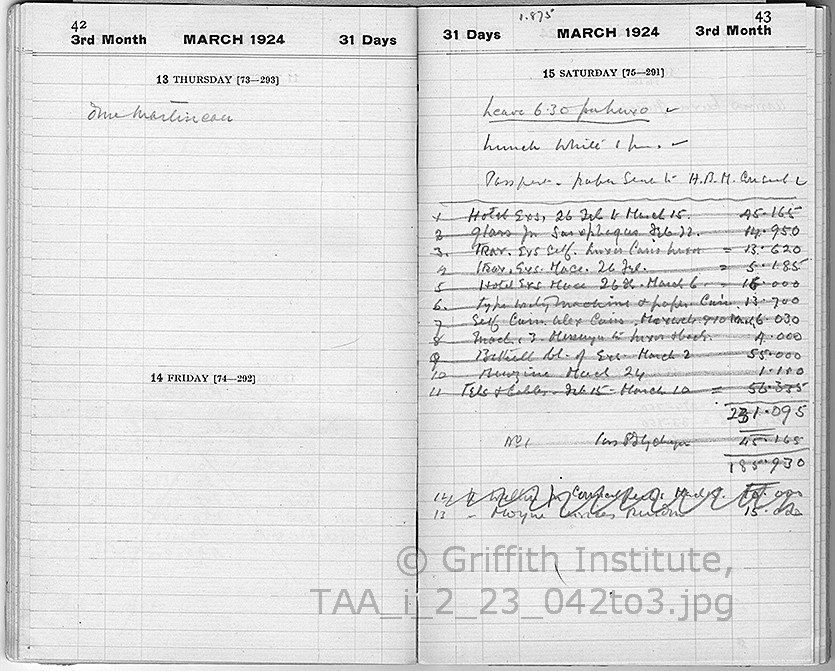 42
3rd Month MARCH 1924 31 Days
13 THURSDAY [73—293]
Martineau
14 FRIDAY [74—292]
1.875
43
31 Days MARCH 1924 3rd Month
15 SATURDAY [75—291]
Leave 6.30 for Luxor
Lunch White 1 pm.
Passport - paper H.B.M. Consul
1 Hotel Exs, 26 Feb to March 15. 45.165
2 glass for Sarcophagus Feb 22. 14.950
3. Trav. Exs Self. Luxor Cairo Luxor = 13.620
4 Trav. Exs. Mace. 26 Feb. = 5.185
5 Hotel Exs Mace 26 Feb. March 6 = 16.000
6. type writing machine & paper Cairo. 13.700
7 Self Cairo. Alex Cairo. 16.030
8 Messenger to Luxor & back. 4.000
9 of Exs March 2 55.000
10 Benzine March 24 1.180
11 Tels & Cables. Feb 15 - March 10 = 56.335
231.095
No 1 45.165
185.930
12
13 15.000
© Griffith Institute,
TAA_i_2_23_042to3.jpg